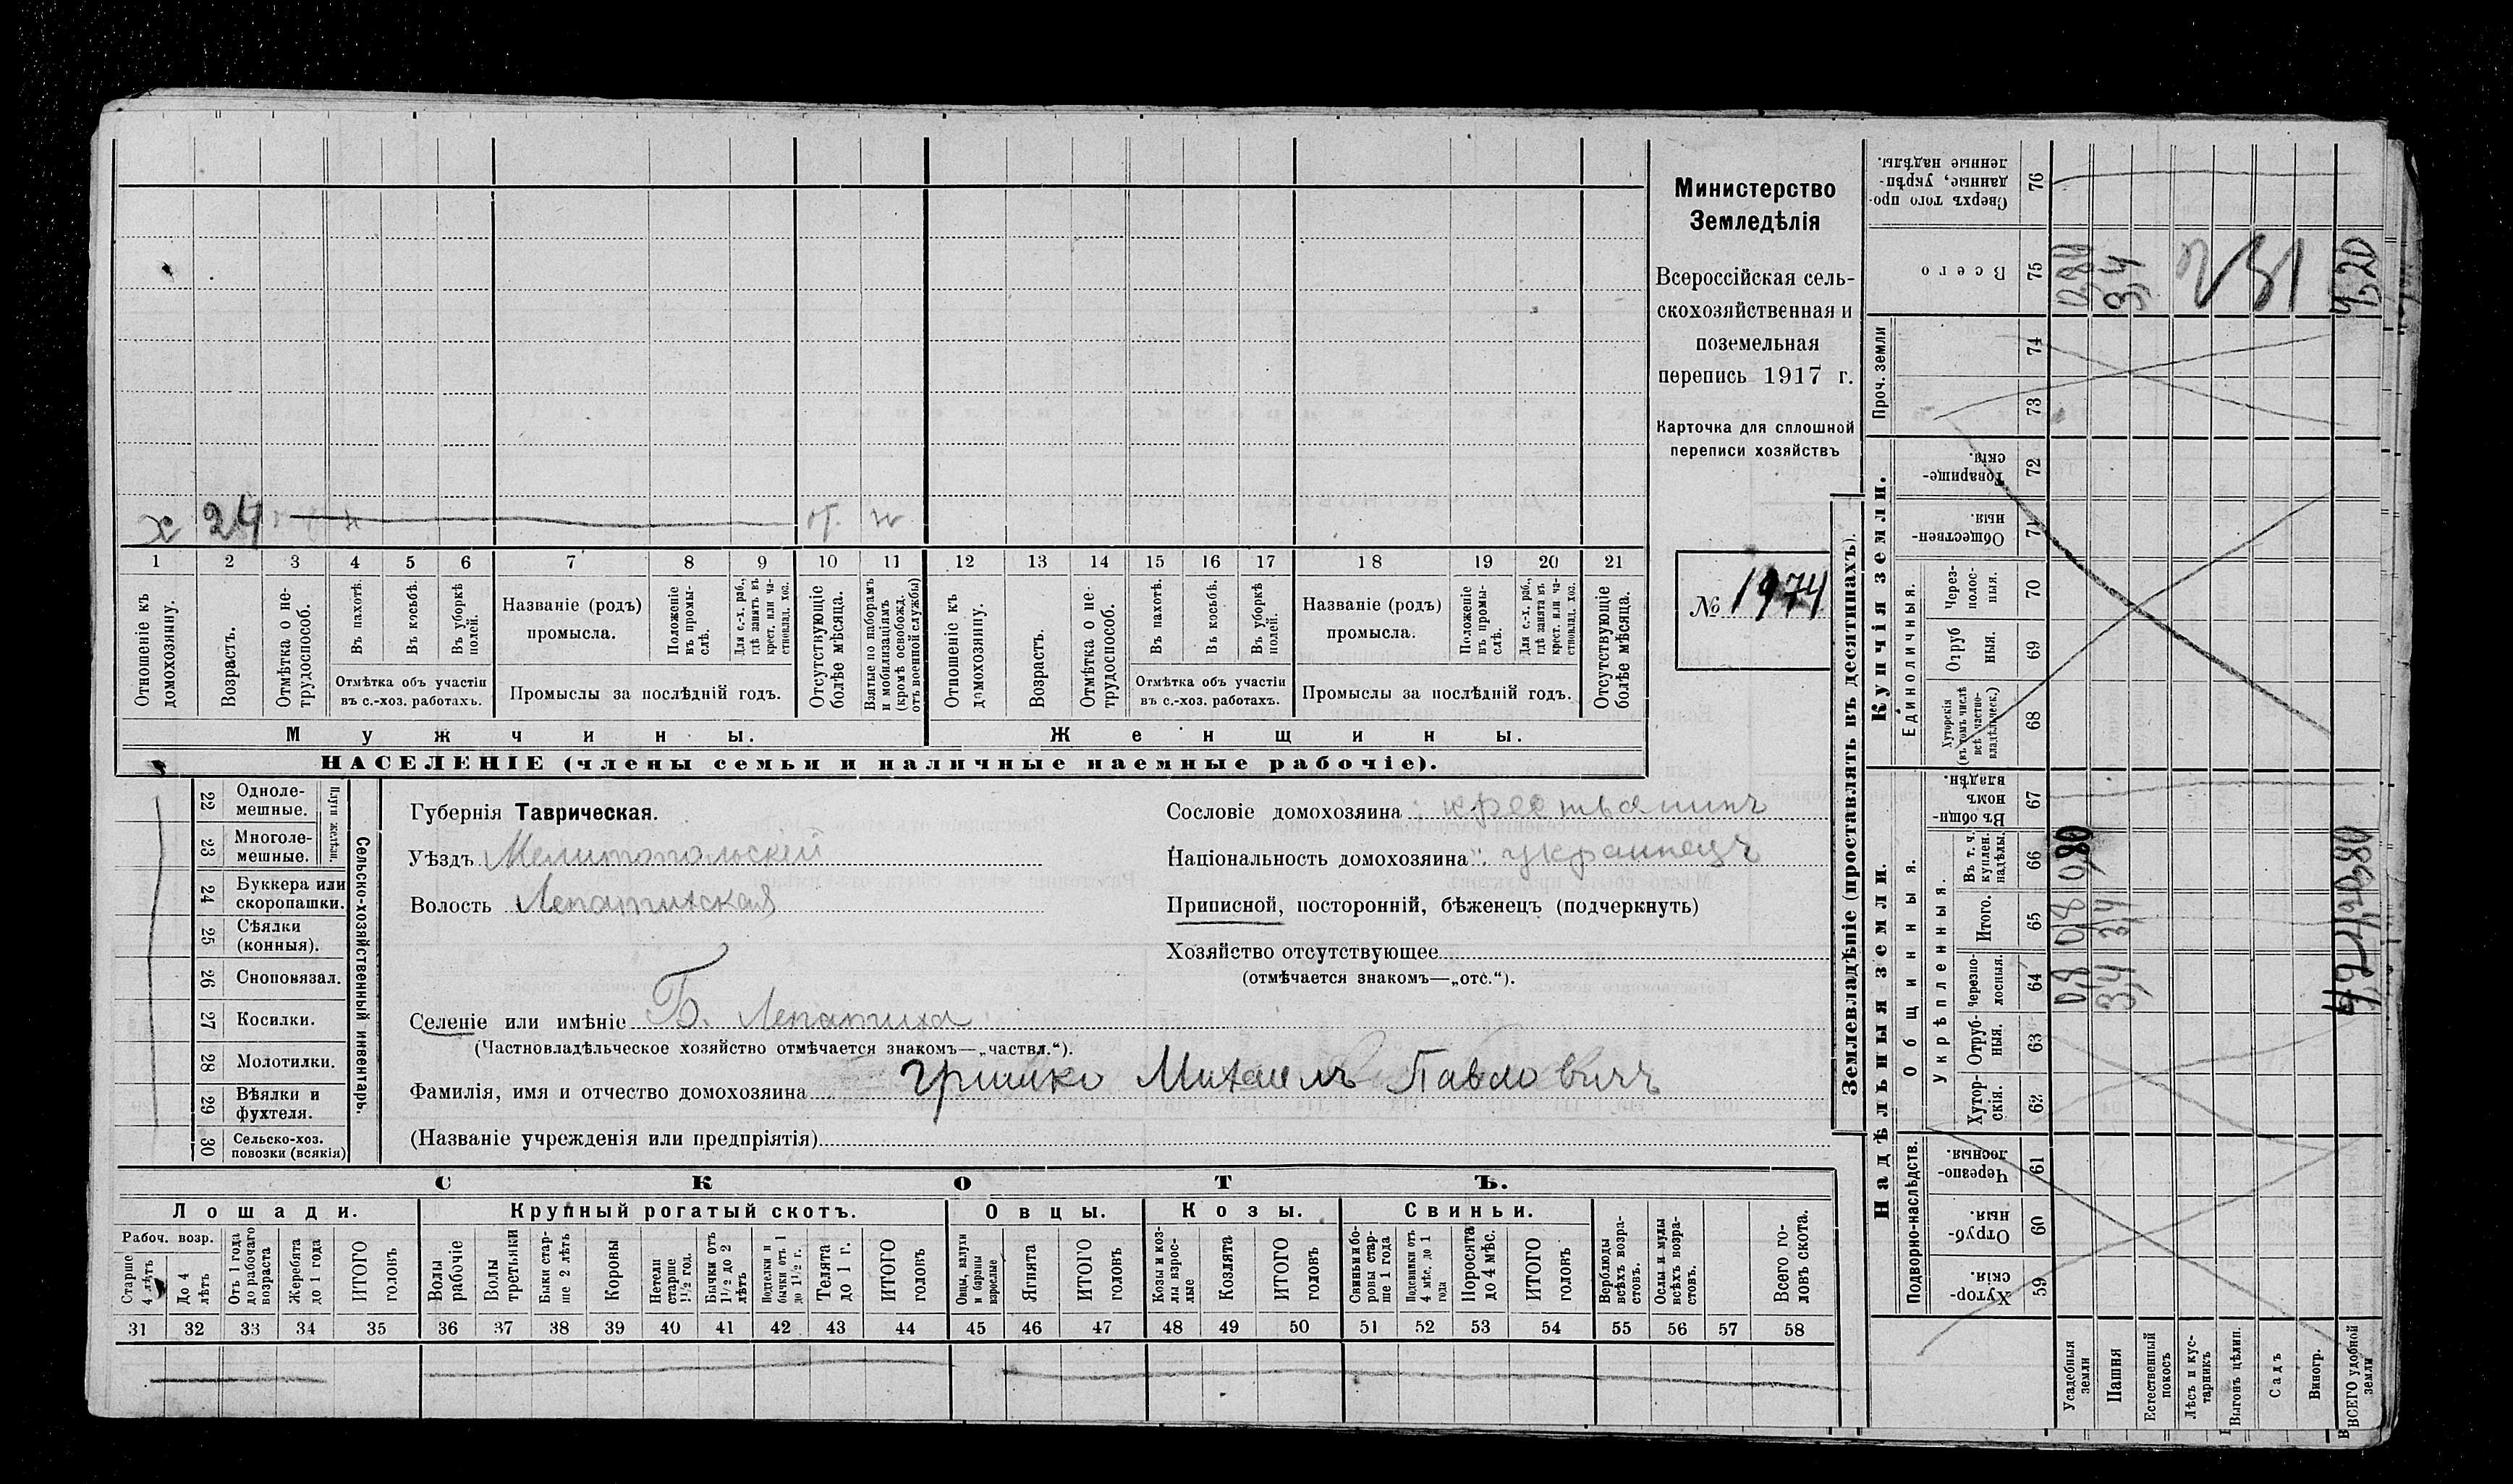 Министерство
Земледѣлія
Всероссійская сель-
скохозяйственная и
поземельная
перепись 1917 г.
Карточка для сплошной
переписи хозяйствъ
№ 1974
х 24 от. в
1 2 3 4 5 6 7 8 9 10 11 12 13 14 15 16 17 18 19 20 21
Отношеніе къ домохозяину.
Возрастъ.
Отмѣтка о не-трудоспособ.
Въ пахотѣ.
Въ косьбѣ.
Въ уборкѣ полей.
Отмѣтка объ участіи
въ с.-хоз. работахъ.
Названіе (родъ)
промысла.
Положеніе въ промы-слѣ.
Для с.-х. раб., гдѣ занятъ въ крест. или ча-стновлад. хоз.
Промыслы за послѣдній годъ.
Отсутствующіе болѣе мѣсяца.
Взятые по наборамъ и мобилизаціямъ (кромѣ освобожд. отъ военной службы)
Отношеніе къ домохозяину.
Возрастъ.
Отмѣтка о не-трудоспособ.
Въ пахотѣ.
Въ косьбѣ.
Въ уборкѣ полей.
Отмѣтка объ участіи
въ с.-хоз. работахъ.
Названіе (родъ)
промысла.
Положеніе въ промы-слѣ.
Для с.-х. раб., гдѣ занята въ крест. или ча-стновлад. хоз.
Промыслы за послѣдній годъ.
Отсутствующіе болѣе мѣсяца.
Мужчины.
Женщины.
НАСЕЛЕНІЕ (члены семьи и наличные наемные рабочіе).
22 Одноле-мешные.
23 Многоле-мешные.
Плуги желѣзн.
24 Буккера или скоропашки.
25 Сѣялки (конныя).
26 Сноповязал.
27 Косилки.
28 Молотилки.
29 Вѣялки и фухтеля.
30 Сельско-хоз. повозки (всякія)
Сельско-хозяйственный инвентарь.
Губернія Таврическая.
Уѣздъ Мелитопольскій
Волость Лепатихская
Селеніе или имѣніе Б. Лепатиха
(Частновладѣльческое хозяйство отмѣчается знакомъ—„частвл.“).
Фамилія, имя и отчество домохозяина Гришко Михаилъ Павловичъ
(Названіе учрежденія или предпріятія)
Сословіе домохозяина крестьянинъ
Національность домохозяина украинецъ
Приписной, посторонній, бѣженецъ (подчеркнуть)
Хозяйство отсутствующее
(отмѣчается знакомъ—„отс.“).
СКОТЪ.
Лошади.
Крупный рогатый скотъ.
Овцы.
Козы.
Свиньи.
Рабоч. возр.
Старше 4 лѣтъ
До 4 лѣтъ
Отъ 1 года до рабочаго возраста
Жеребята до 1 года
ИТОГО головъ
Волы рабочіе
Волы третьяки
Быки стар-ше 2 лѣтъ
Коровы
Нетели старше 1½ год.
Бычки отъ 1½ до 2 лѣтъ
бычки отъ 1 до 1½ г.
Телята до 1 г.
ИТОГО головъ
Овцы, валухи и бараны взрослые
Ягнята
ИТОГО головъ
Козы и коз-лы взрос-лые
Козлята
ИТОГО головъ
Свиньи и бо-ровы стар-ше 1 года
Подсвинки отъ 4 мѣс. до 1 года
Поросята до 4 мѣс.
ИТОГО головъ
Верблюды всѣхъ возра-стовъ.
Ослы и мулы всѣхъ возра-стовъ.
Всего го-ловъ скота.
31 32 33 34 35 36 37 38 39 40 41 42 43 44 45 46 47 48 49 50 51 52 53 54 55 56 57 58
Землевладѣніе (проставлять въ десятинахъ).
Надѣльныя земли.
Подворно-наслѣдств.
Хутор-скія. 59
Отруб-ныя. 60
Черезпо-лосныя. 61
Общинныя.
Укрѣпленныя.
Хутор-скія. 62
Отруб-ныя. 63
Черезпо-лосныя. 64
Итого. 65
Въ т. ч. куплен. надѣлы. 66
Въ общин-номъ владѣн. 67
Купчія земли.
Единоличныя.
Хуторскія (въ томъ числѣ всѣ частно-владѣльческ.) 68
Отруб ныя. 69
Через-полос-ныя. 70
Обществен-ныя. 71
Товарище-скія. 72
Проч. земли
73
74
Всего 75
Сверхъ того про-данные, укрѣп-ленные надѣлы. 76
Усадебныя земли 0,8 0,8 0,80
Пашня 3,4 3,4 3,4
Естественный покосъ
Лѣсъ и кус-тарникъ
Выгонъ цѣлин.
Садъ
Виногр.
ВСЕГО удобной земли 4,20 0,80 4,20
231